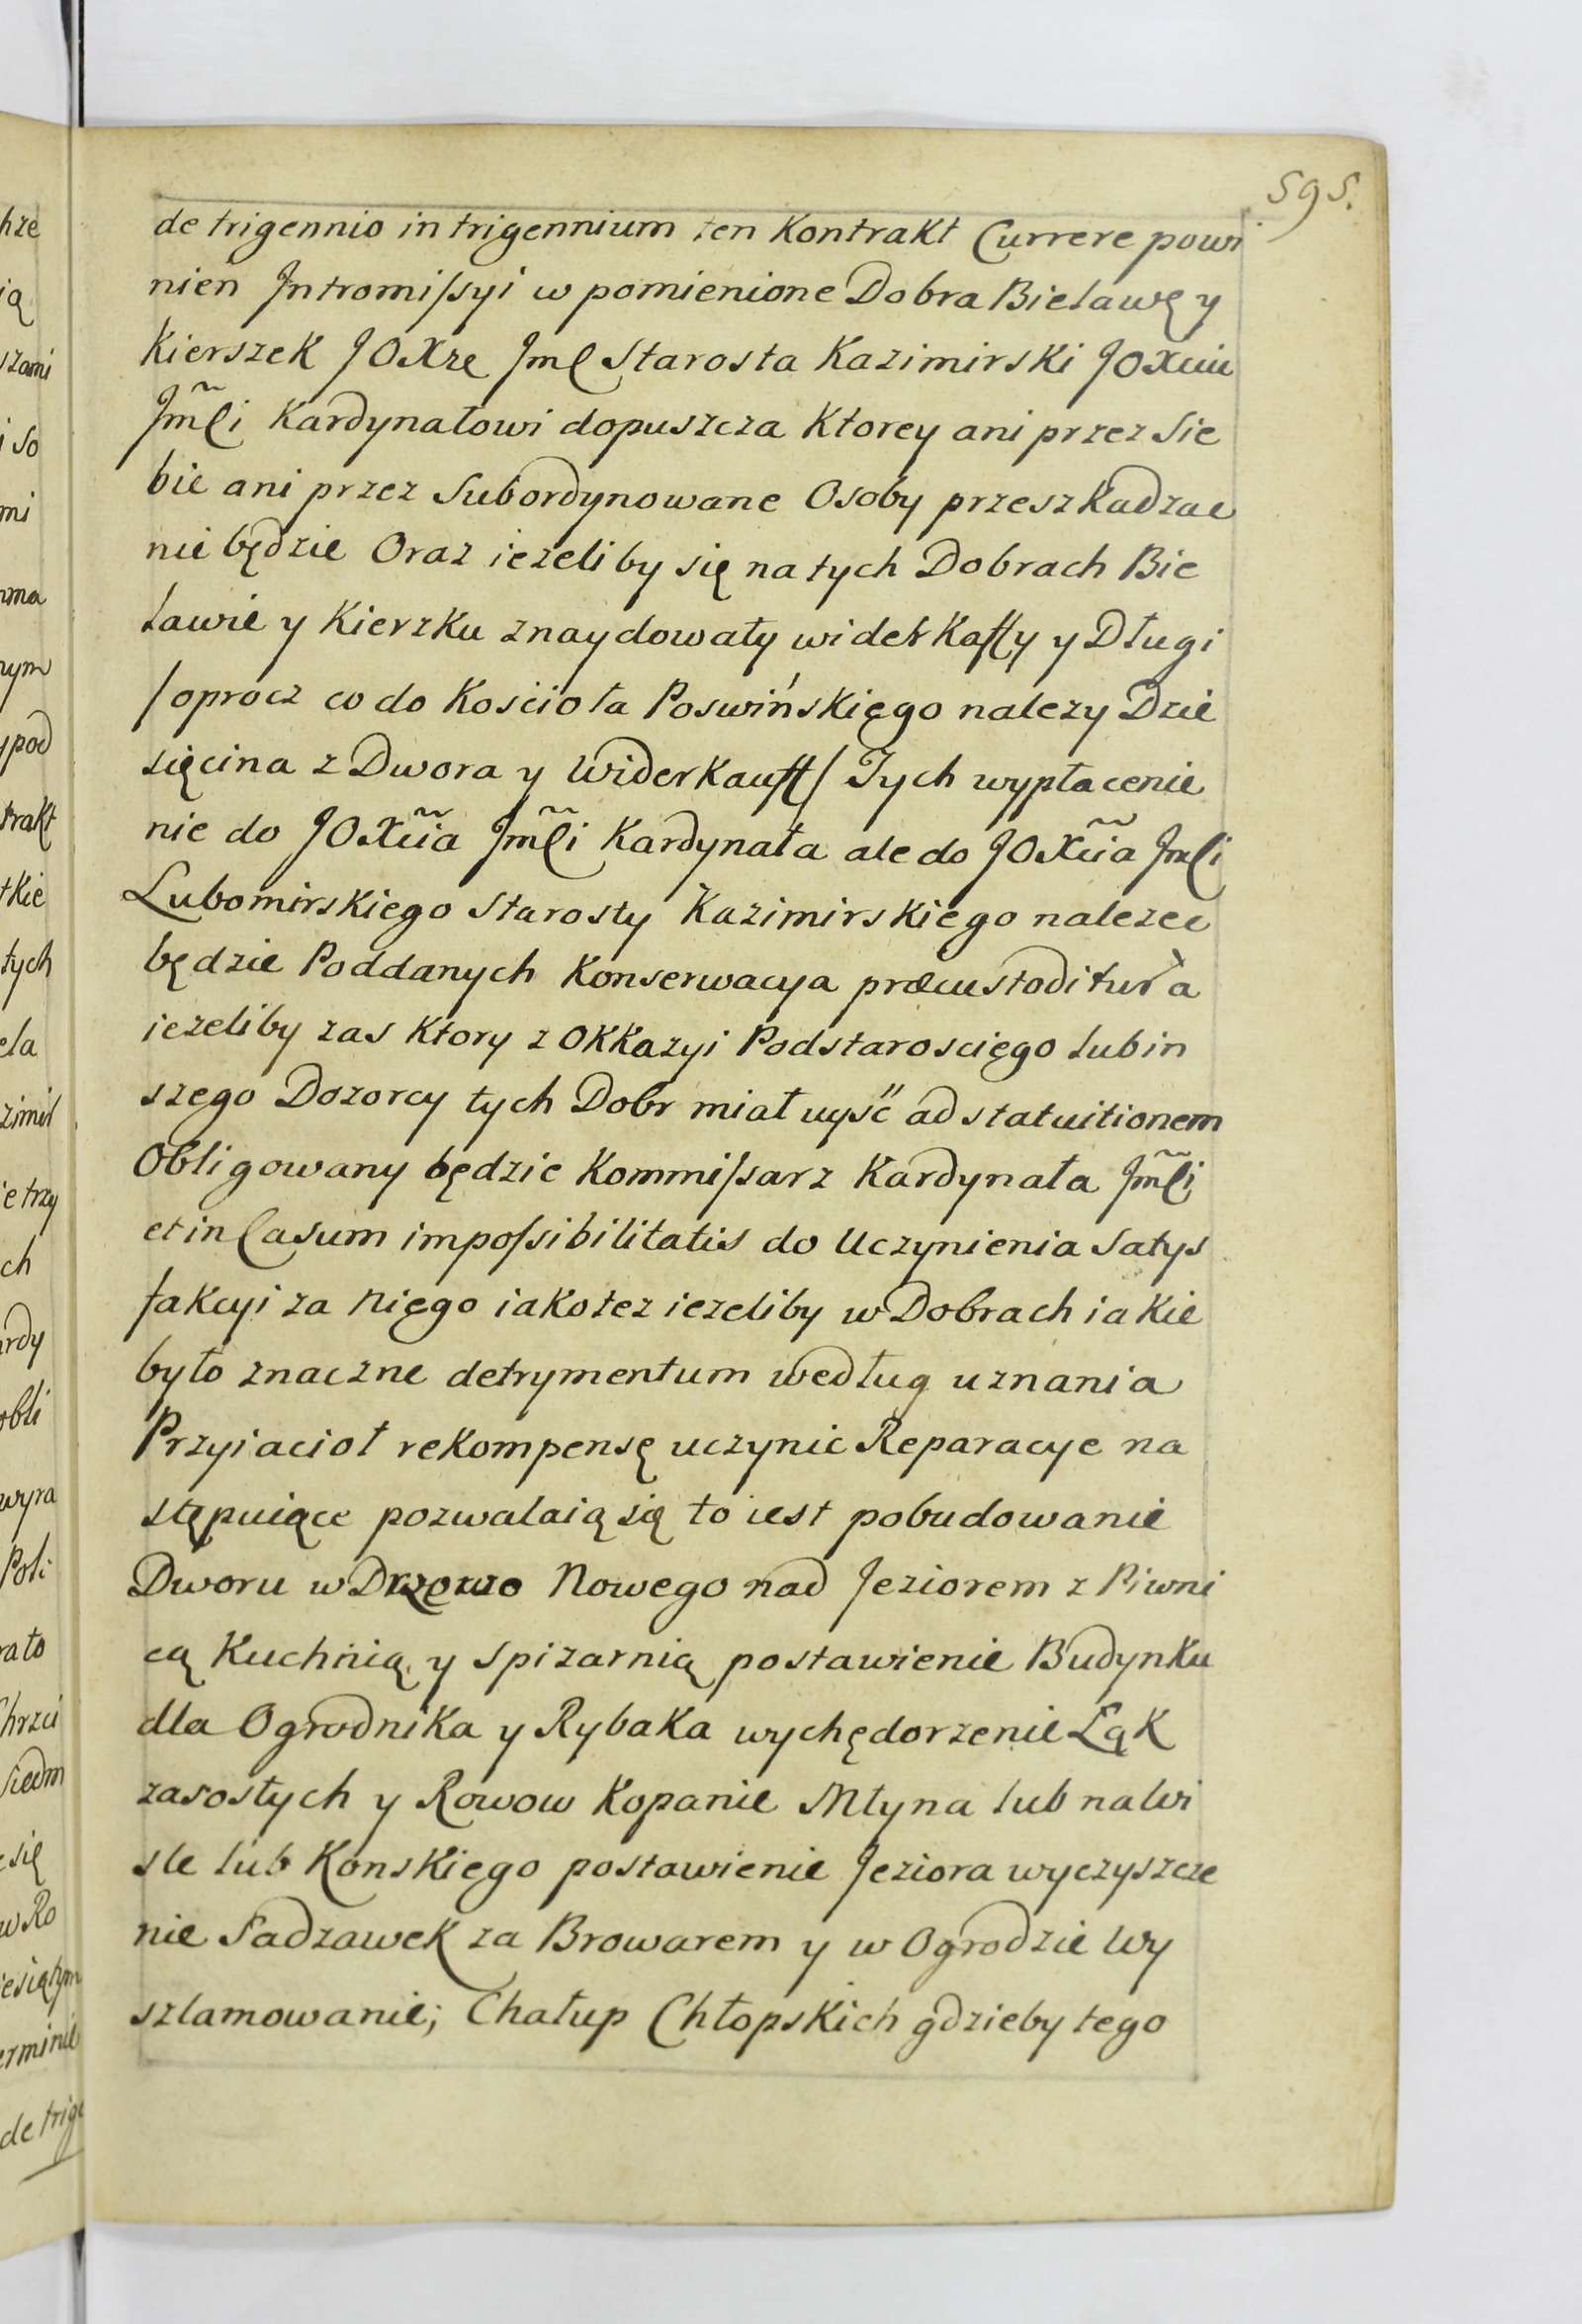 595.
de trigennio in trigennium ten Kontrakt Currere powi
nien Intromissyi w pomienione Dobra Bielawę y
Kierszek JOXze Jmć Starosta Kazimirski JOXciu
Jm̃ći Kardynałowi dopuszcza Ktorey ani przez Sie
bie ani przez Subordynowane Osoby przeszkadzac
nie będzie Oraz iezeliby się na tych Dobrach Bie
lawie y Kierzku znaydowały widerkaffy y Długi
/oprocz co do Kościoła Poswińskięgo nalezy Dzie
sięcina z Dwora y Widerkauff/ Tych wypłacenie
nie do JOXc̃ia Jm̃ći Kardynała ale do JOXc̃ia Jmći
Lubomirskiego Starosty Kazimirskiego nalezec
będzie Poddanych Konserwacya præcustoditur à
iezeliby zas Ktory z OKKazyi Podstaroscięgo lub in
szego Dozorcy tych Dobr miał uyść ad statuitionem
Obligowany będzie Kommissarz Kardynała Jm̃ći
et in Casum impossibilitatis do Uczynienia Satys
fakcyi za Nięgo iako tez iezeliby w Dobrach iakie
było znaczne detrymentum według uznania
Przyiacioł rekompensę uczynic Reparacye na
stępuiące pozwalaią się to iest pobudowanie
Dworu w Drzewo Nowego nad Jeziorem z Piwni
cą Kuchnią y Spizarnią postawienie Budynku
dla Ogrodnika y Rybaka wychędorzenie Łąk
zarosłych y Rowow Kopanie Młyna lub na Wi
sle lub Konskiego postawienie Jeziora wyczyszcze
nie Sadzawek za Browarem y w Ogrodzie Wy
szlamowanie; Chałup Chłopskich gdzieby tego